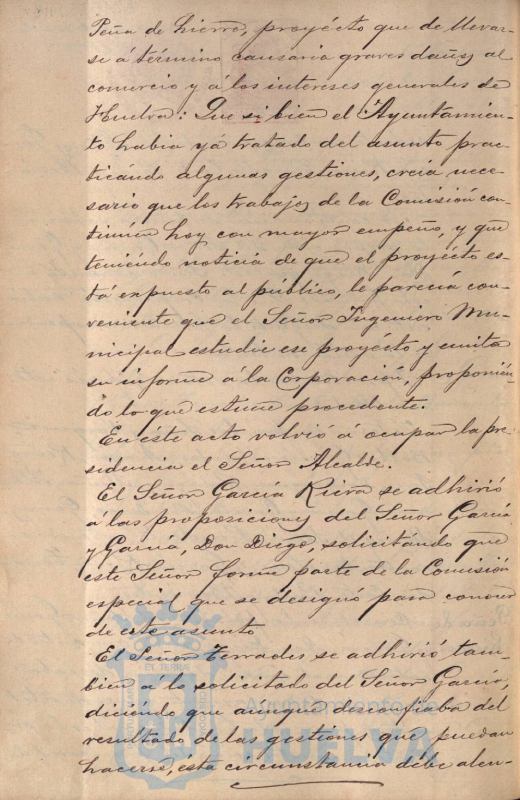 Peña de hierro, proyécto que de llevar-
se á término causaria graves daños al
comercio y á los intereses generales de
Huelva: Que si bien el Ayuntamien-
to habia yá tratado del asunto prac-
ticándo algunas gestiones, creía nece-
sario que los trabajos de la Comisión con-
tinúen hoy con mayor empeño, y que
teniéndo noticia de que el proyécto es-
tá expuesto al público, le parecia con-
veniente que el Señor Ingeniero Mu-
nicipal estudie ese proyécto y emita
su informe á la Corporación, proponien-
do lo que estime procedente.
En éste acto volvió á ocupar la pre-
sidencia el Señor Alcalde.
El Señor García Riera se adhirió
á las proposiciones del Señor García
y García, Don Diego, solicitándo que
este Señor forme parte de la Comisión
especial que se designó para conocer
de este asunto
El Señor Terrades se adhirió tam-
bien á lo solicitado del Señor García,
diciéndo que aunque desconfiaba del
resultado de las gestiones que puedan
hacerse, ésta circunstancia debe alen-
EL TERRAE
Ayuntamiento de
HUELVA